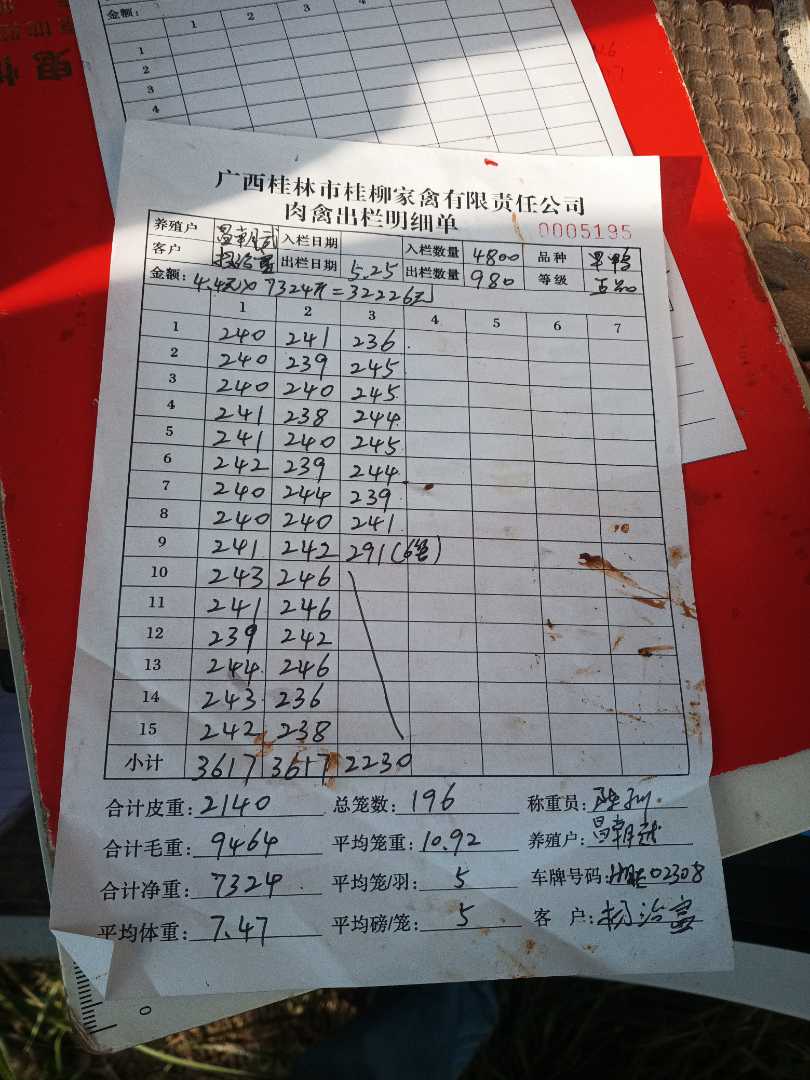 金额:
1 2 3
1
2
3
4
广西桂林市桂柳家禽有限责任公司
肉禽出栏明细单
0005195
养殖户 入栏日期 入栏数量 4800 品种
客户 杨治富 出栏日期 5.25 出栏数量 980 等级
金额: 4.4元×7324斤=32226元
1 2 3 4 5 6 7
1 240 241 236
2 240 239 245
3 240 240 245
4 241 238 244
5 241 240 245
6 242 239 244
7 240 244 239
8 240 240 241
9 241 242 291(6笼)
10 243 246
11 241 246
12 239 242
13 244 246
14 243 236
15 242 238
小计 3617 3617 2230
合计皮重: 2140 总笼数: 196 称重员:
合计毛重: 9464 平均笼重: 10.92 养殖户:
合计净重: 7324 平均笼/羽: 5 车牌号码: 02308
平均体重: 7.47 平均磅/笼: 5 客户: 杨治富
0